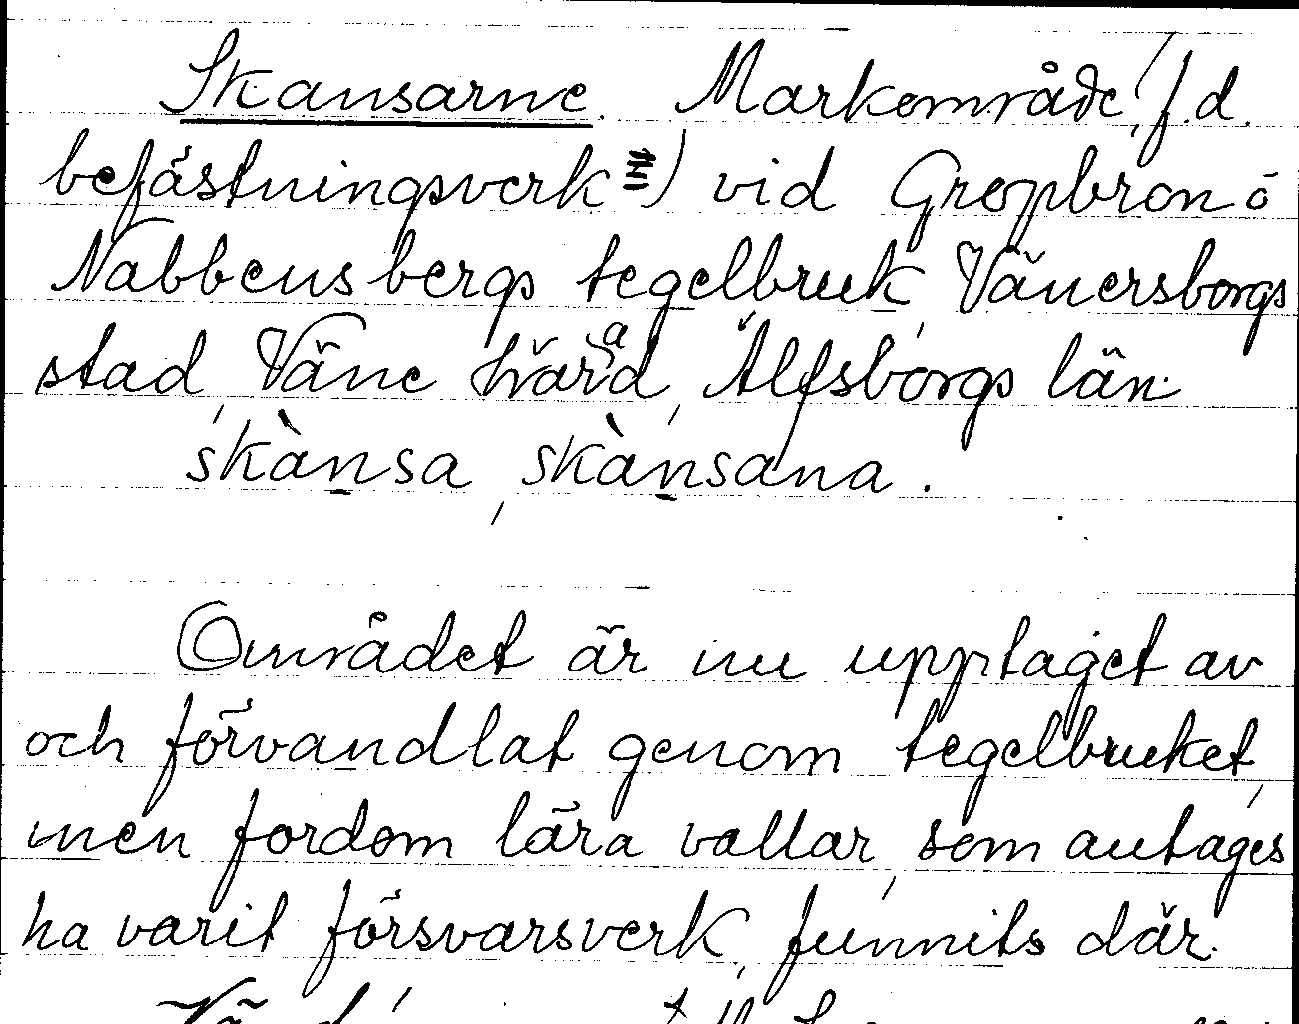 Skansarne. Markområde, (f.d.
befästningsverk) vid Gropbron å
Nabbensbergs tegelbruk, Vänersborgs
stad, Väne härad, Älfsborgs län.
skànsa, skànsana.
Området är nu upptaget av
och förvandlat genom tegelbruket,
men fordom lära vallar, som antages
ha varit försvarsverk, funnits där.